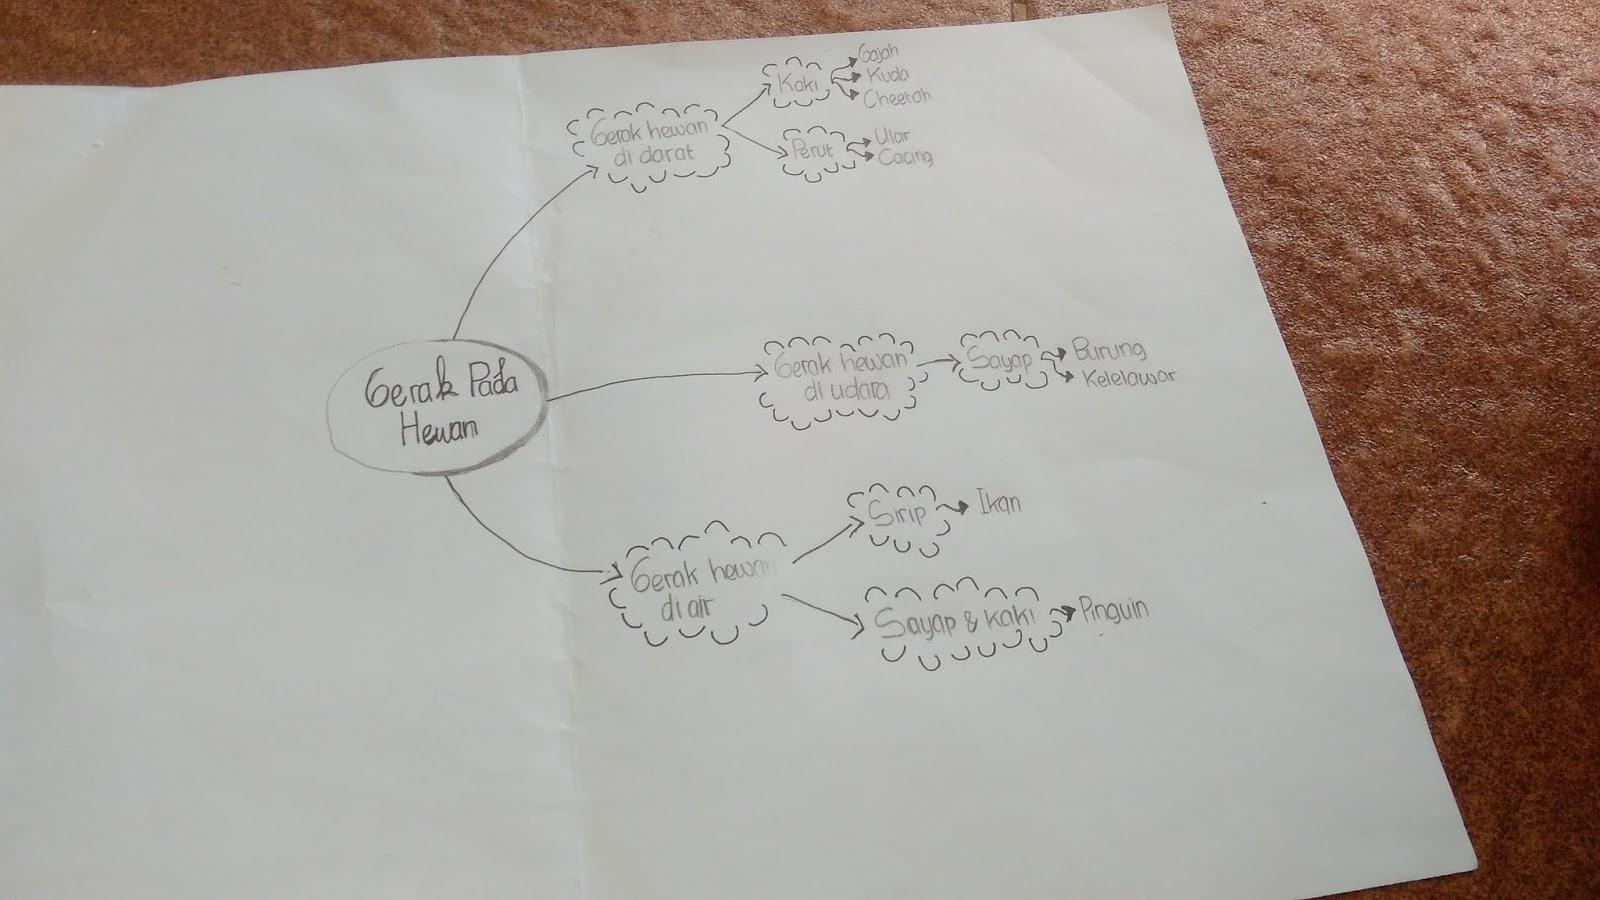 Gerak Pada
Hewan
Gerak hewan
di darat
Kaki
Gajah
Kuda
Cheetah
Perut
Ular
Cacing
Gerak hewan
di udara
Sayap
Burung
Kelelawar
Gerak hewan
di air
Sirip
Ikan
Sayap & Kaki
Pinguin